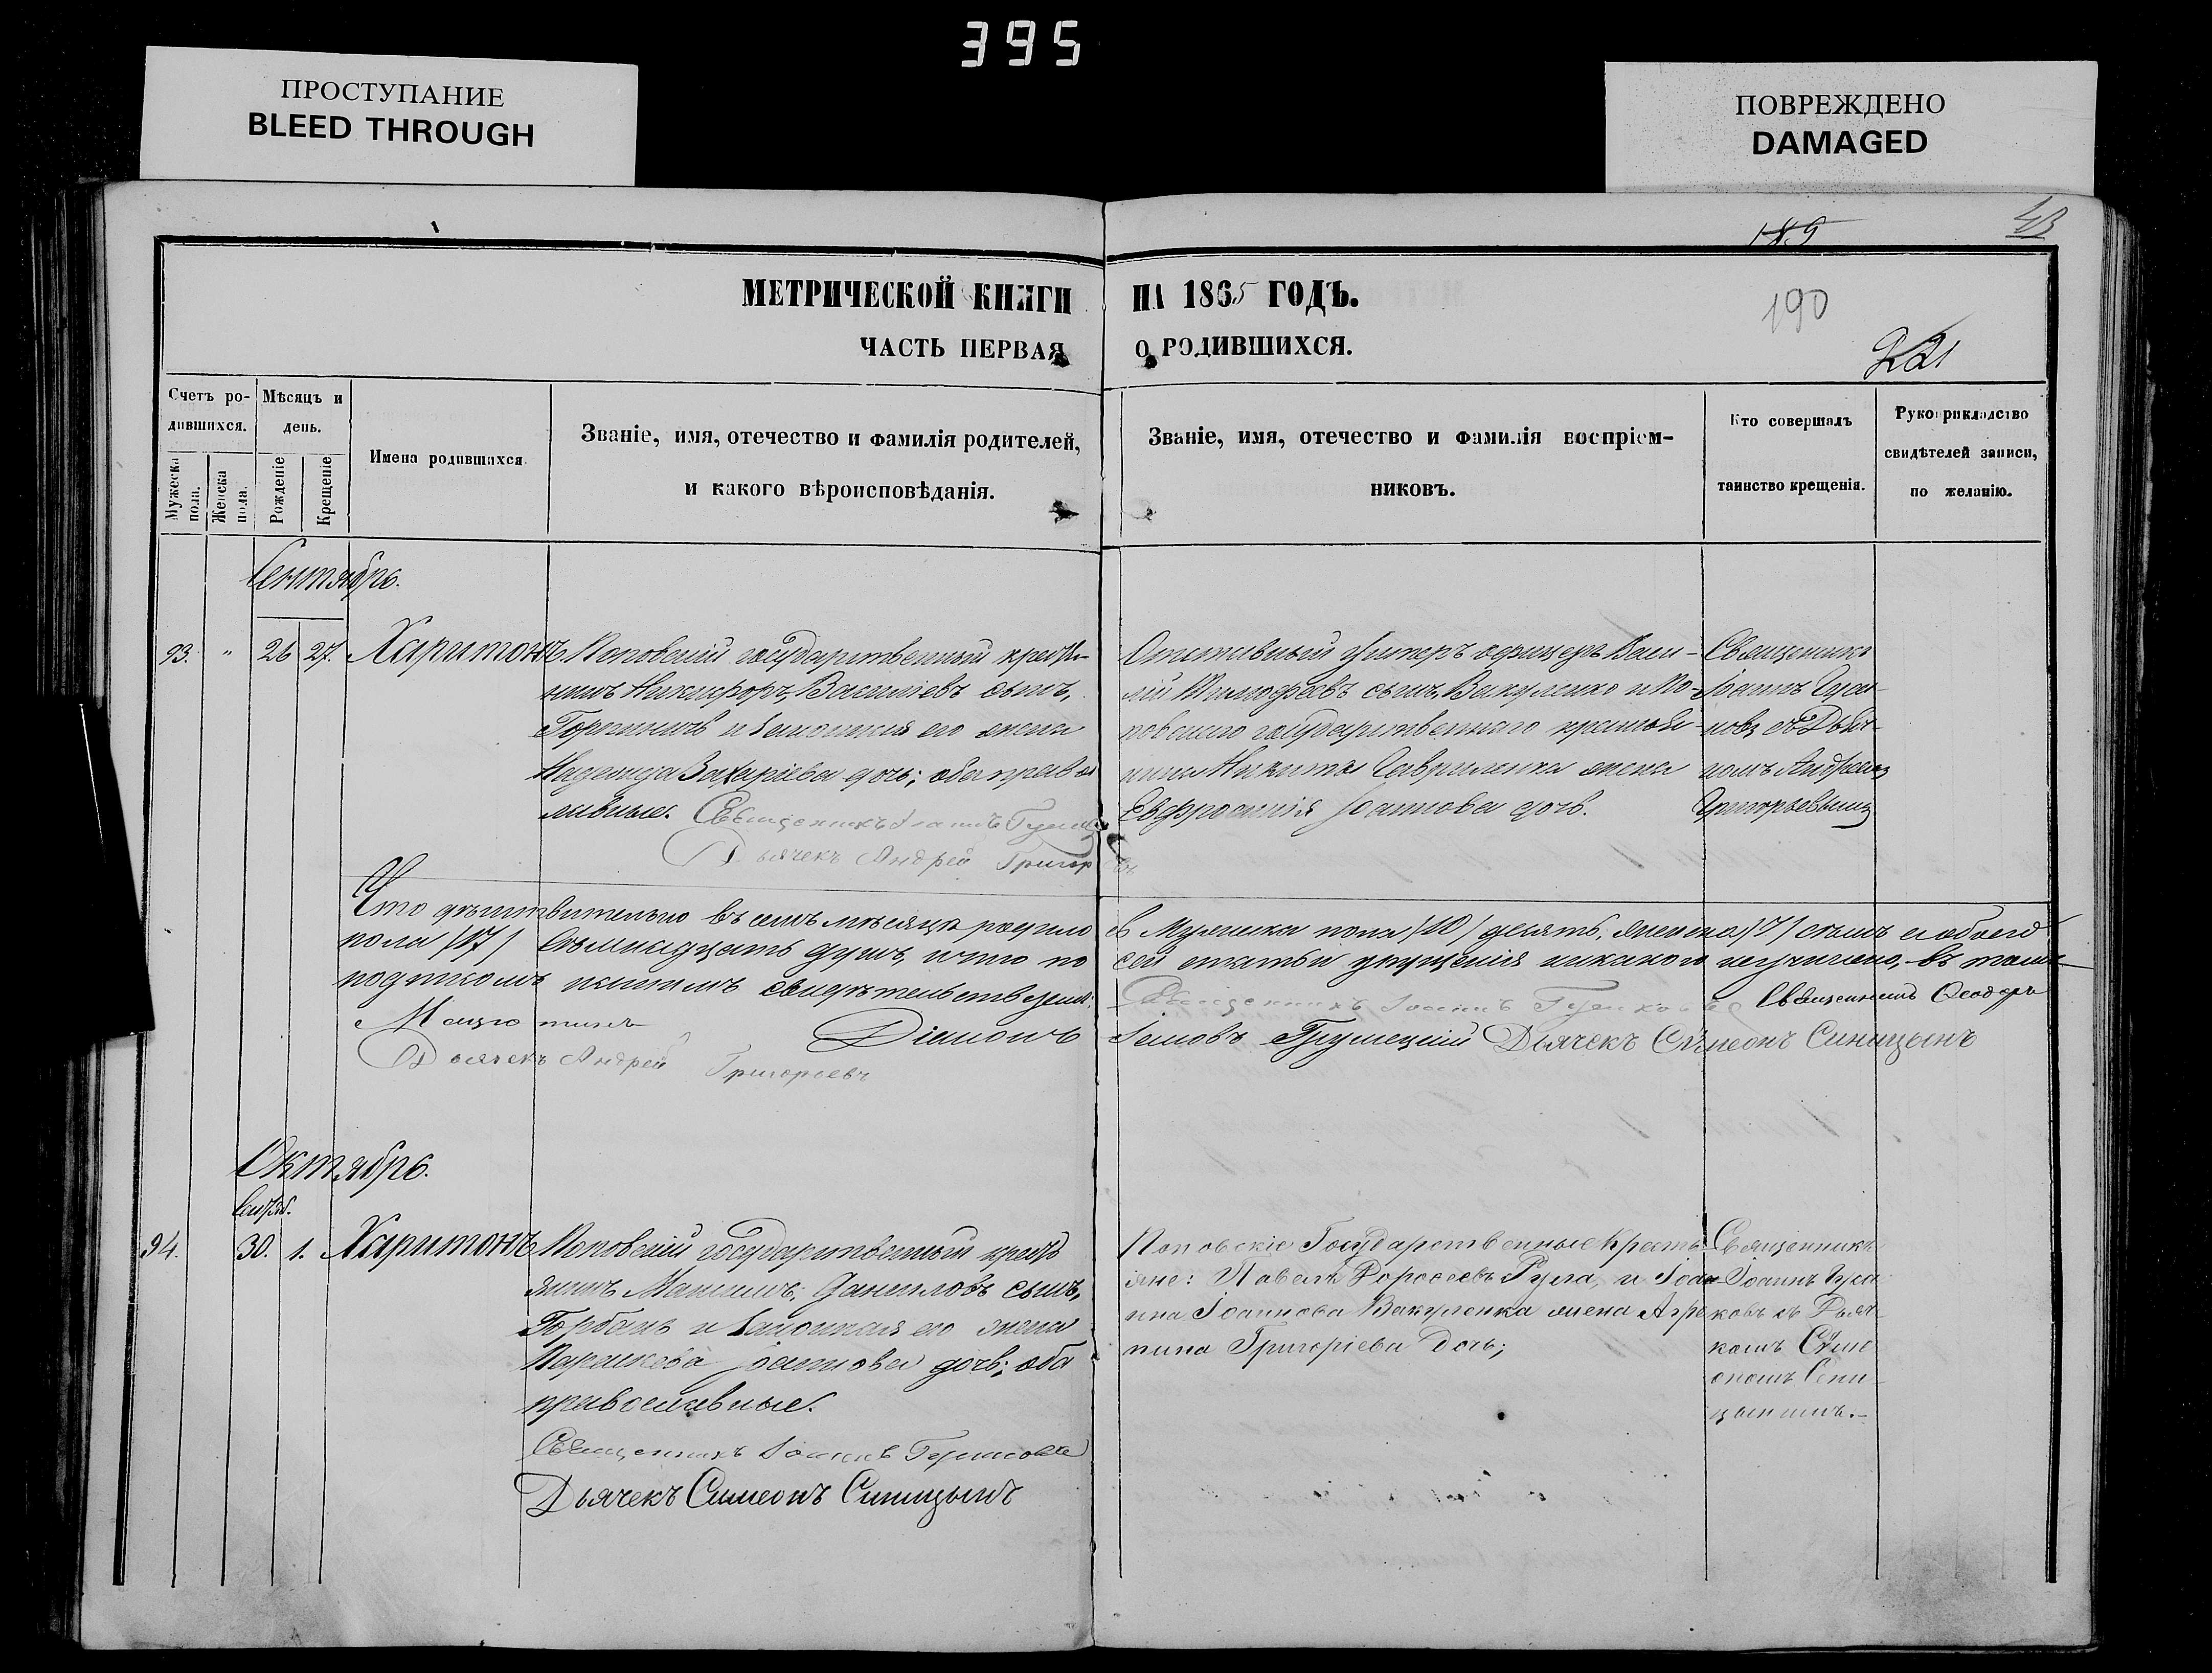 395
ПРОСТУПАНИЕ
BLEED THROUGH
ПОВРЕЖДЕНО
DAMAGED
189
43
МЕТРИЧЕСКОЙ КНИГИ НА 1865 ГОДЪ.
190
ЧАСТЬ ПЕРВАЯ О РОДИВШИХСЯ.
221
Счетъ родившихся.
Мужеска пола.
Женска пола.
Мѣсяцъ и день.
Рожденіе
Крещеніе
Имена родившихся
Званіе, имя, отечество и фамилія родителей,
и какого вѣроисповѣданія.
Званіе, имя, отечество и фамилія воспріем-
никовъ.
Кто совершалъ
таинство крещенія.
Рукоприкладство
свидѣтелей записи,
по желанію.
Сентябрь.
93. " 26 27. Харитонъ
Поповскій государственный крестья-
нинъ Никифоръ Васильевъ сынъ,
и законная его жена
Надежда Захаріева дочь; оба право
славные. Священникъ Іоаннъ
Дьячекъ Андрей Григорьевъ
Отставный Унтеръ офицеръ Васи-
лій Тимофеевъ сынъ Вакуленко и По-
повскаго государственнаго крестья-
нина Никиты Гавриленка жена
Евфросинія Іоаннова дочь.
Священникъ
Іоаннъ Гуса-
ковъ съ Дьяч-
комъ Андреемъ
Григорьевымъ
Что дѣйствительно въ семъ мѣсяцѣ родилось Мужеска пола /10/ десять, женска /7/ семь а обоего
пола /17/ семнадцать душъ, и что по сей статьи упущенія никакого не учинено, въ томъ
подписомъ нашимъ свидѣтельствуемъ: Священникъ Іоаннъ Священникъ Ѳеодоръ
Діаконъ Іаковъ Грушецкій Дьячекъ Сѵмеонъ Синицынъ
Дьячекъ Андрей Григорьевъ
Октябрь.
Сентяб.
94. 30. 1. Харитонъ
Поповскій государственный кресть
янинъ Максимъ Даниловъ сынъ,
Горбань и законная его жена
Параскева Іоаннова дочь; оба
православные.
Священникъ Іоаннъ Гусаковъ
Дьячекъ Симеонъ Синицынъ
Поповскіе Государственные Кресть
яне: Павелъ Дороѳеевъ Гула, и Іоан
на Іоаннова Вакуленка жена Агре
пина Григоріева Дочь;
Священникъ
Іоаннъ Гуса
ковъ съ Дьяч
комъ Сѵме
ономъ Сини
цынымъ.—